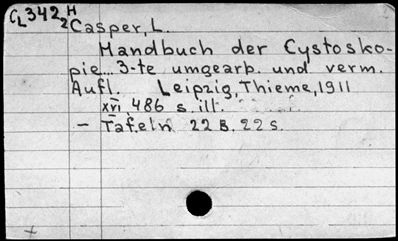 CL342H
2
Casper, L.
Handbuch der Cystosko-
pie... 3-te umgearb. und verm.
Aufl. Leipzig, Thieme, 1911
XVI, 486 s. ill.
- Tafeln 22 B. 22 s.